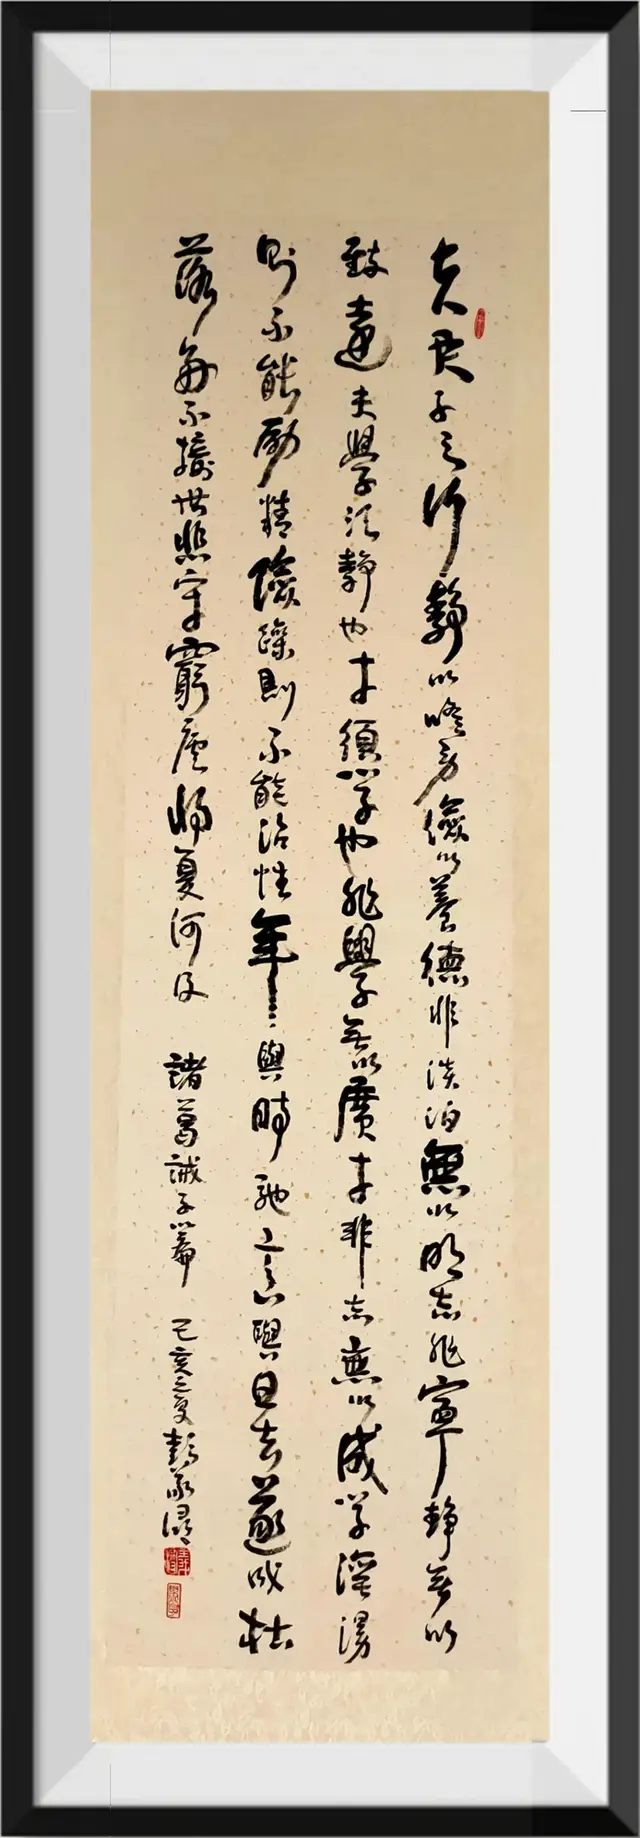 夫君子之行靜以脩身儉以養德非淡泊無以明志非寧靜無以
致遠夫學須靜也才須學也非學無以廣才非志無以成學淫漫
則不能勵精險躁則不能治性年與時馳意與日去遂成枯
落多不接世悲守窮廬將复何及 諸葛誡子篇 己亥之夏彭